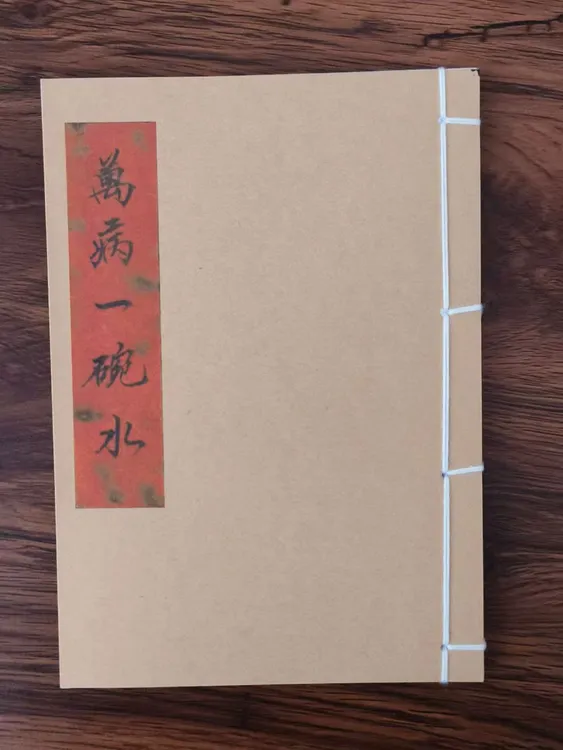 萬病一碗水